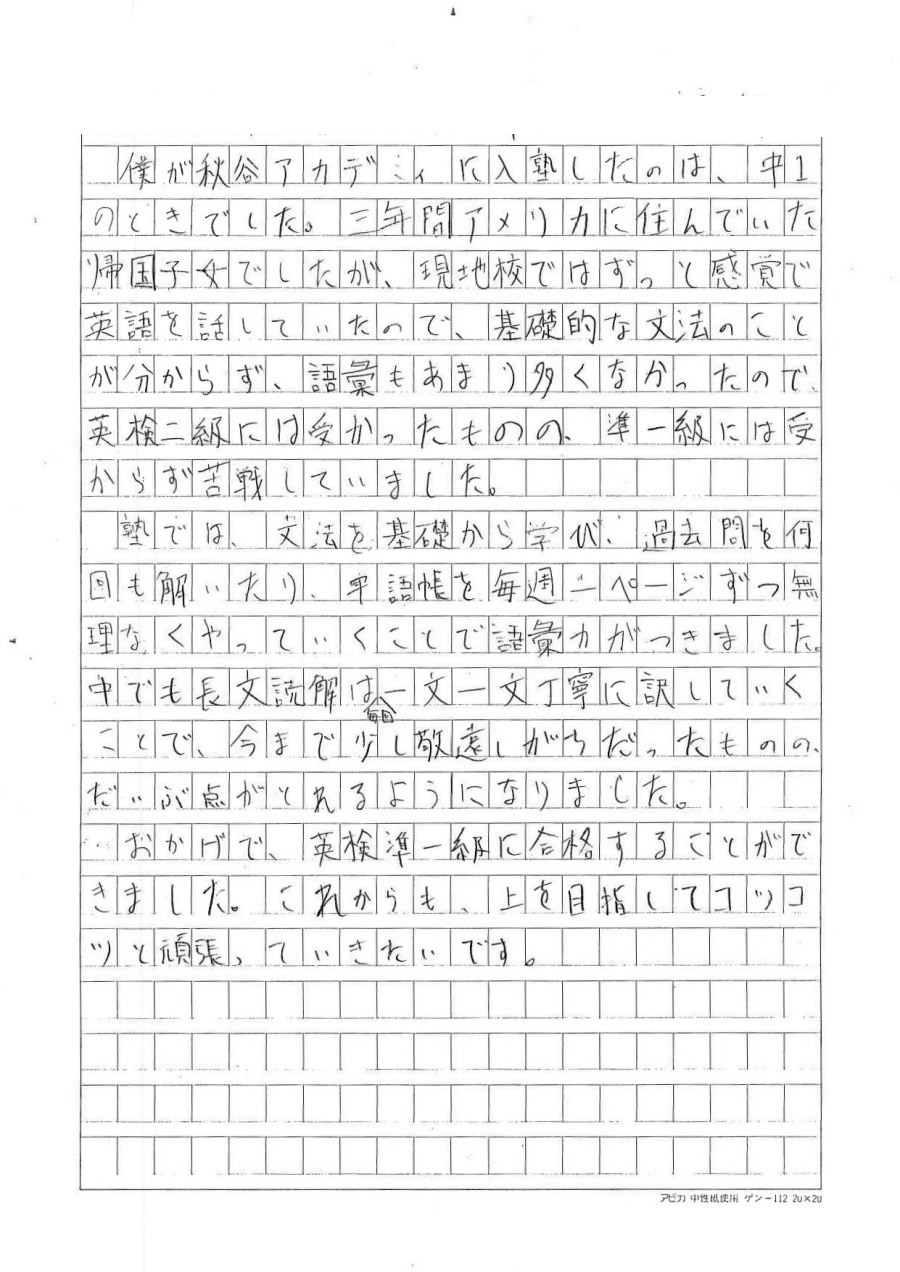 僕が秋谷アカデミィに入塾したのは、中1
のときでした。三年間アメリカに住んでいた
帰国子女でしたが、現地校ではずっと感覚で
英語を話していたので、基礎的な文法のこと
が分からず、語彙もあまり多くなかったので、
英検二級には受かったものの、準一級には受
からず苦戦していました。
塾では、文法を基礎から学び、過去問を何
回も解いたり、単語帳を毎週二ページずつ無
理なくやっていくことで語彙力がつきました。
中でも長文読解は毎回一文一文丁寧に訳していく
ことで、今まで少し敬遠しがちだったものの、
だいぶ点がとれるようになりました。
おかげで、英検準一級に合格することがで
きました。これからも、上を目指してコツコ
ツと頑張っていきたいです。
アピカ 中性紙使用 ゲン-112 20×20